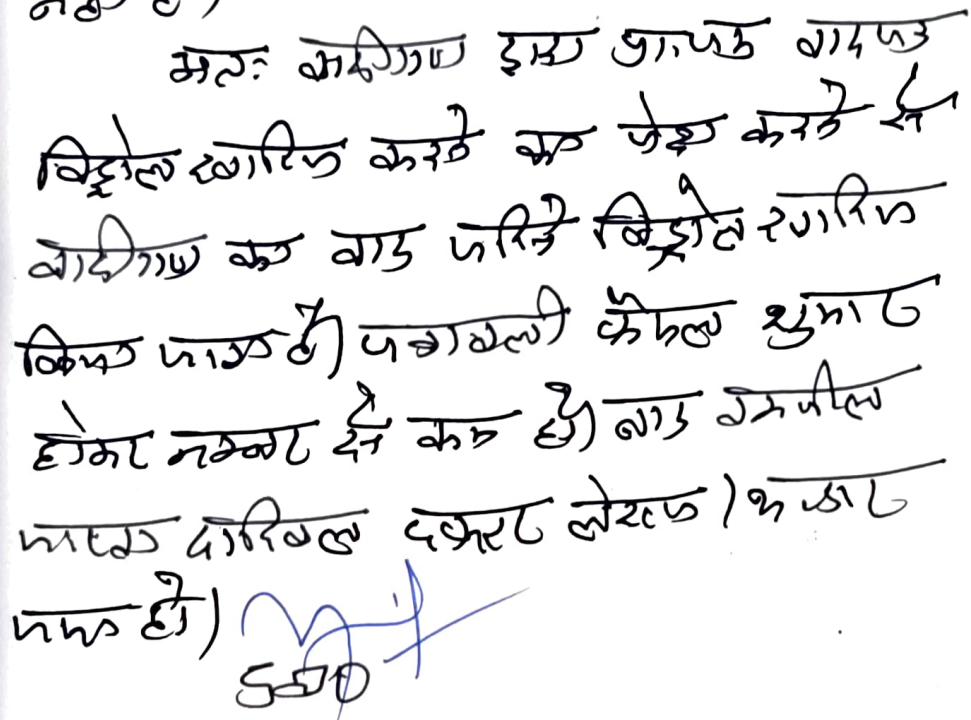 अतः वादीगण द्वारा प्रस्तुत वादपत्र
विड्रोल खारिज करने का पेश करने से
वादीगण का वाद जरिये विड्रोल खारिज
किया जाता है। पत्रावली फैसल शुमार
होकर नम्बर से कम हो। बाद तकमील
दाखिल दफ्तर
हो।
SDO